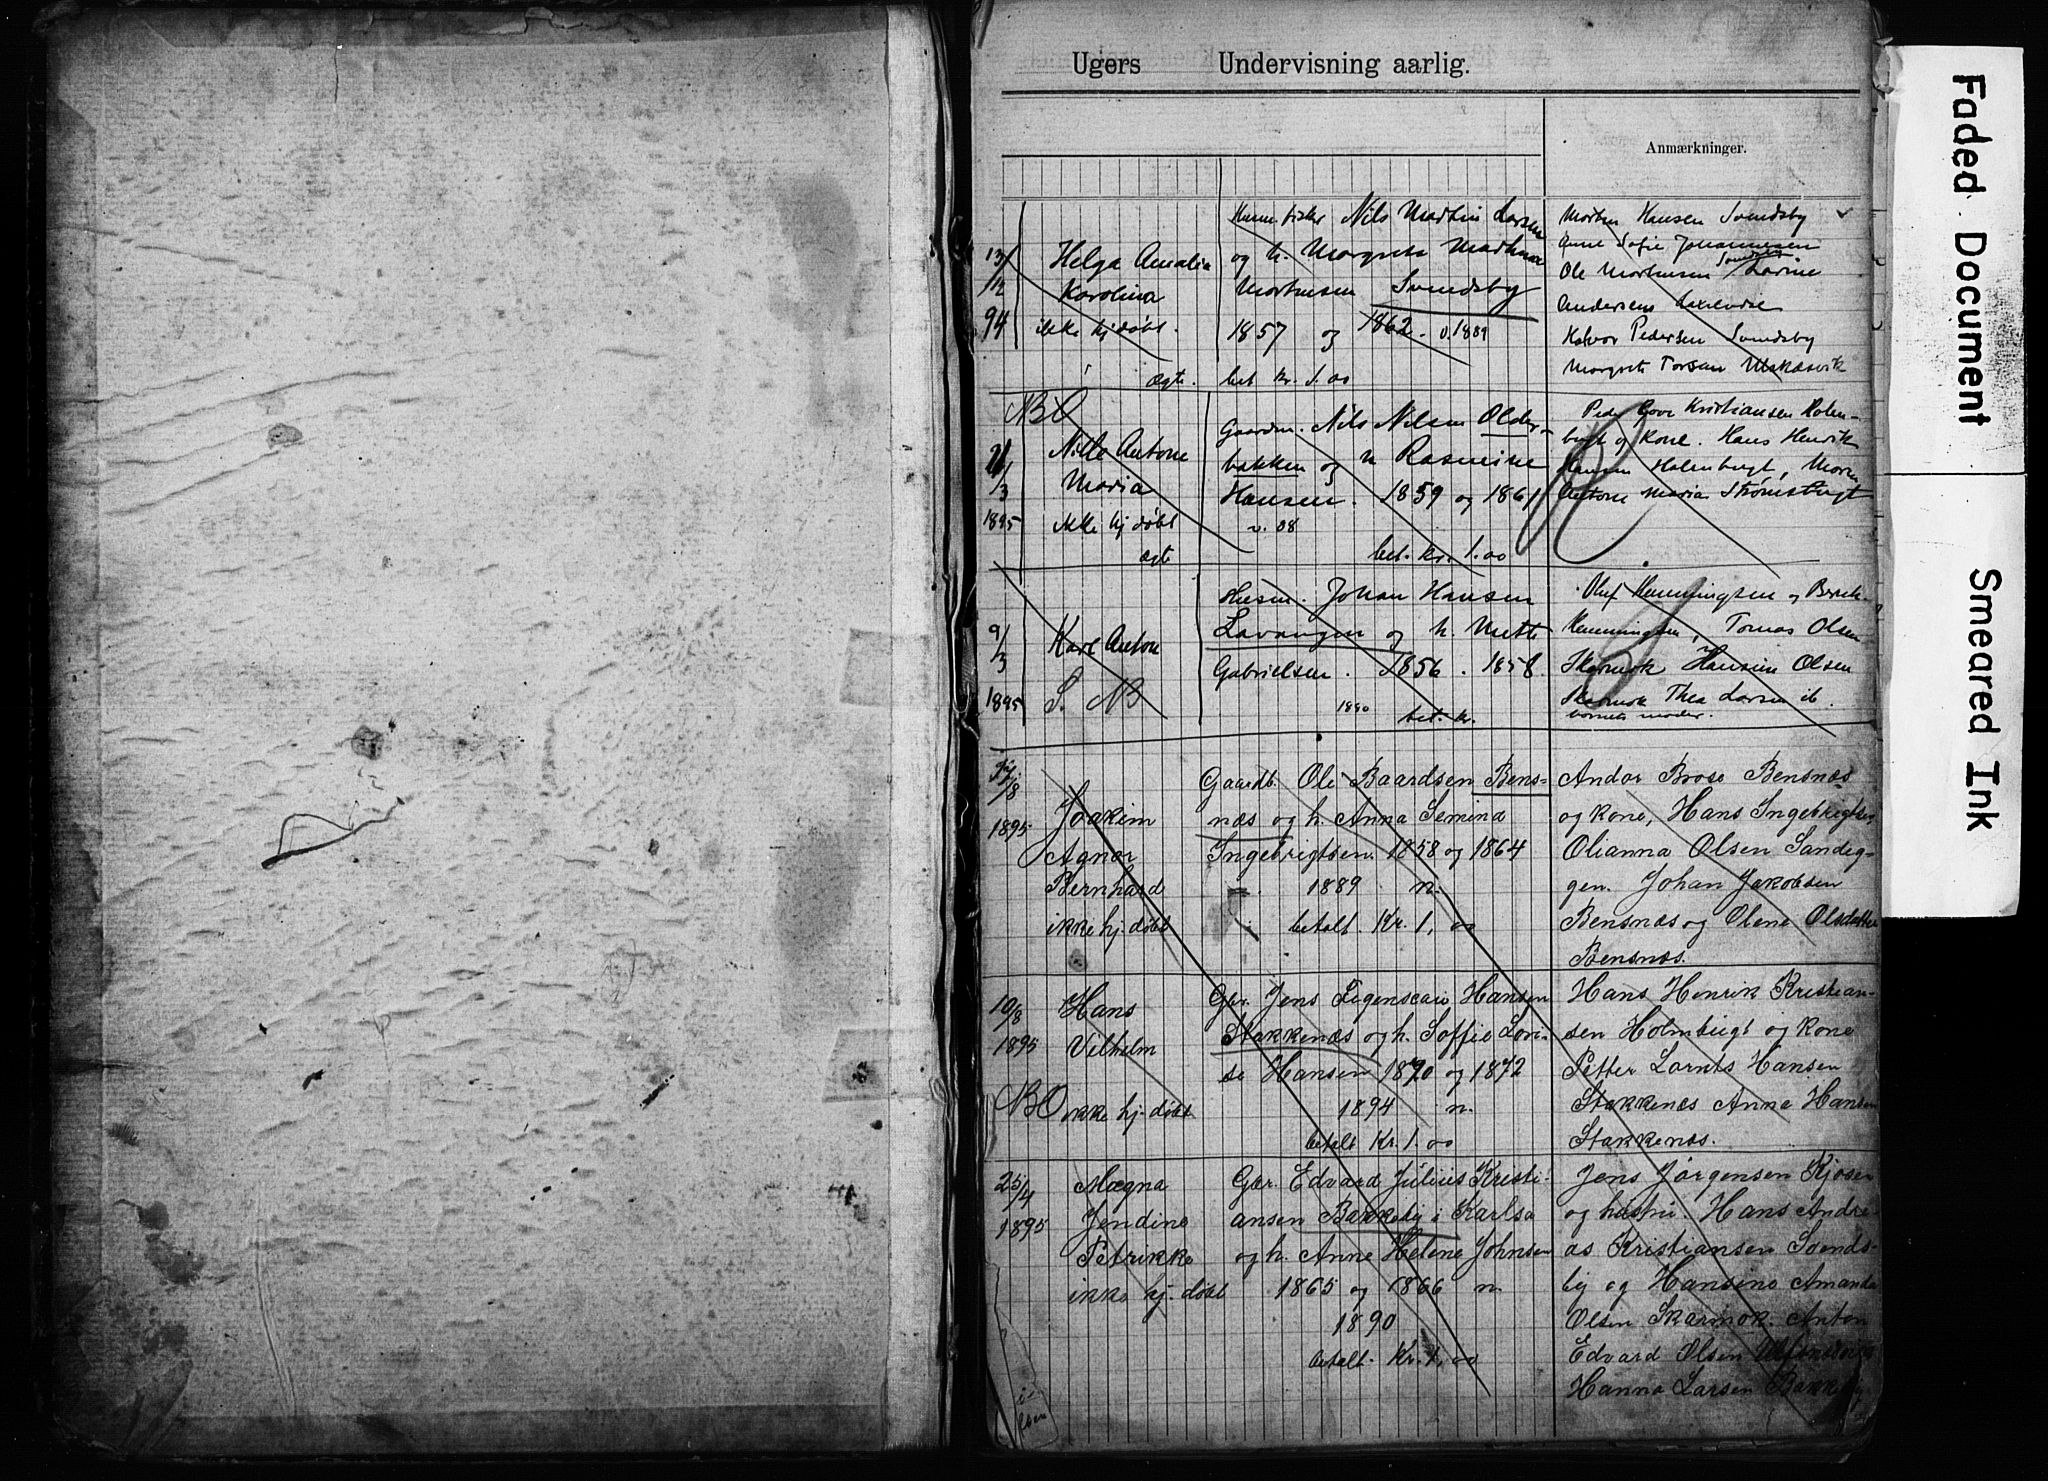 Ugers Undervisning aarlig.
Anmærkninger.
13/12 94
Helga Amalia
Karolina
ikke hj døbt.
ægte.
Nils Martin Larsen
og h. Margrete Mathea
Mortensen Svendsby
1857 og 1862. v. 1889
bet kr. 1.00
Morten Hansen Svendsby
Anne Sofie Johannesen
Svendsby
Ole Mortensen Lovine
Andersens
Halvor Pedersen Svendsby
Margrete
NB
/3
1895
Antone
Maria
ikke hj døbt
ægt
Gaardm. Nils Nilsen Older-
bakken og h Rasmine
Hansen. 1859 og 1861
v. 08
bet. kr. 1.00
Peder Kristiansen Holm-
bugt og Kone. Hans Henrik
Hansen Holmbugt,
Antone Maria Strømsbugt
9/3
1895
Kare Antone
S. NB
Husm. Johan Hansen
Lavangen og h. Mette
Gabrielsen. 1856. 1858.
1890
bet. kr.
Oluf Henningsen og
Henningsen, Tomas Olsen
Skarmok Hansine Olsen
Skarmok Thea Larsen ib.
barnets moder.
/8
1895
Joakim
Agnor
Bernhard
ikke hj. døbt
Gaardb. Ole Baardsen Bens-
næs og h. Anna Semina
Ingebrigtsen. 1858 og 1864
1889 n.
betalt. Kr. 1,00
Andor Brose Bensnæs
og kone, Hans Ingebrigtsen,
Olianna Olsen Sandeg-
gen. Johan Jakobsen
Bensnæs og Olene Olsdatter
Bensnæs.
10/8
1895
Hans
Vilhelm
NB ikke hj. døbt
Gbr. Jens Hansen
Stakkenæs og h. Soffie Lovi-
se Hansen 1870 og 1872
1894 n.
betalt Kr. 1.00
Hans Henrik Kristian-
sen Holmbugt og kone
Petter Lornts Hansen
Stakkenæs Anna Hansen
Stakkenæs.
25/4
1895
Magna
Jendine
Petrikke
ikke hj. døbt
Gbr. Edvard Julius Kristi-
ansen Bakkeby i Karlsø
og h. Anne Helene Johnsen
1865 og 1866 n.
1890
betalt. Kr. 1,00
Jens Jørgensen Kjosen
og hustru. Hans Andre-
as Kristiansen Svends-
by og Hansine Amanda
Olsen Skarmok. Anton
Edvard Olsen
Hanna Larsen Bakkeby
Faded Document
Smeared Ink